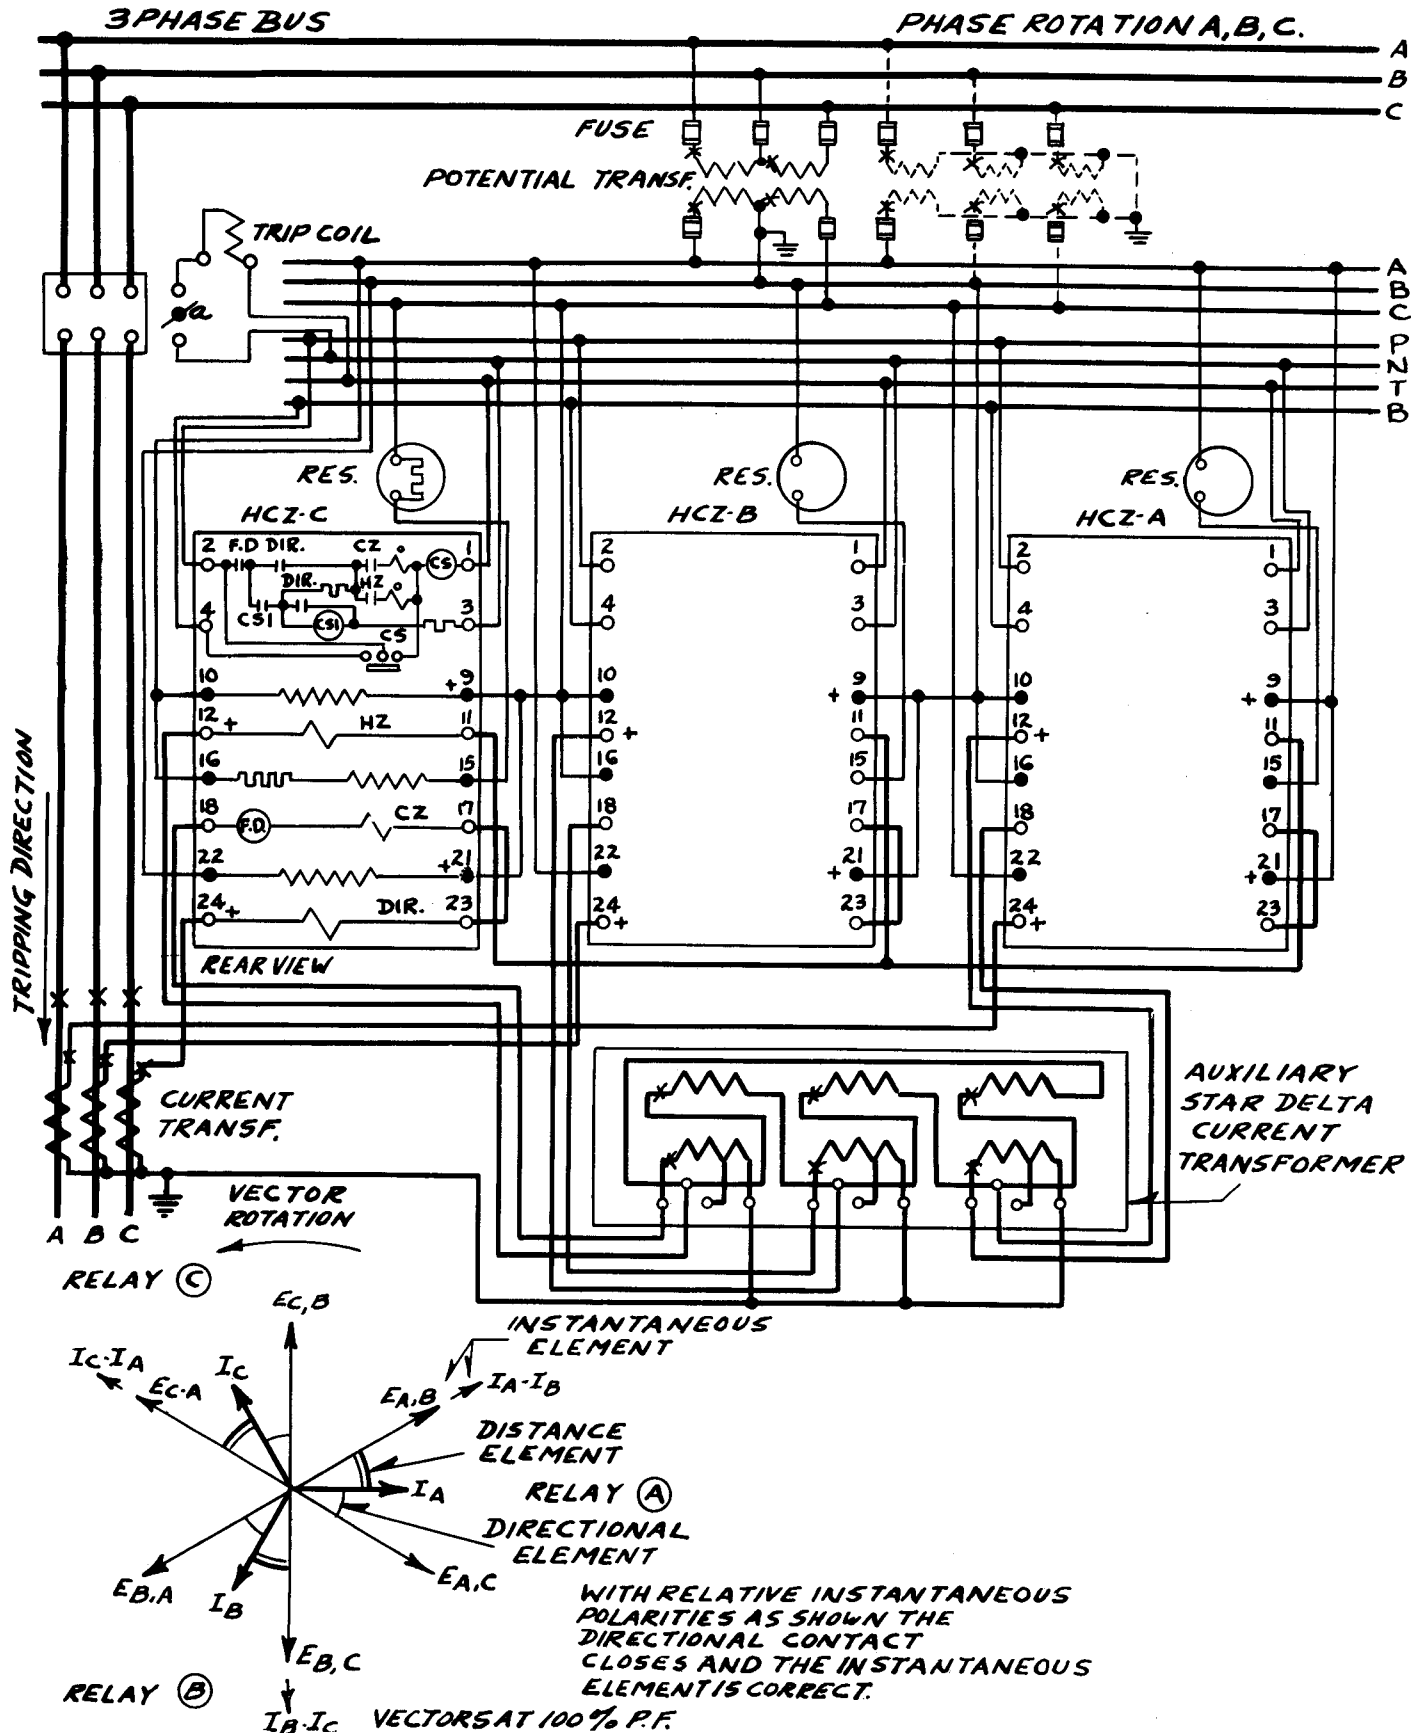 3 PHASE BUS
PHASE ROTATION A, B, C.
A
B
C
FUSE
POTENTIAL TRANSF.
TRIP COIL
a
A
B
C
P
N
T
B
RES.
RES.
RES.
HCZ-C
HCZ-B
HCZ-A
2 F.D DIR. CZ o CS 1
DIR. HZ o
4 CS1 CS1 CS 3
10 + 9
12 + HZ 11
16 15
18 F.D. CZ 17
22 + 21
24 + DIR. 23
REAR VIEW
2 1
4 3
10 + 9
12 + 11
16 15
18 17
22 + 21
24 + 23
2 1
4 3
10 + 9
12 + 11
16 15
18 17
22 + 21
24 + 23
TRIPPING DIRECTION
CURRENT
TRANSF.
AUXILIARY
STAR DELTA
CURRENT
TRANSFORMER
A B C
VECTOR
ROTATION
RELAY C
EC,B
INSTANTANEOUS
ELEMENT
IC-IA
EC-A
IC
EA,B
IA-IB
DISTANCE
ELEMENT
IA
RELAY A
DIRECTIONAL
ELEMENT
EB,A
IB
EA,C
EB,C
RELAY B
IB-IC
WITH RELATIVE INSTANTANEOUS
POLARITIES AS SHOWN THE
DIRECTIONAL CONTACT
CLOSES AND THE INSTANTANEOUS
ELEMENT IS CORRECT.
VECTORS AT 100% P.F.